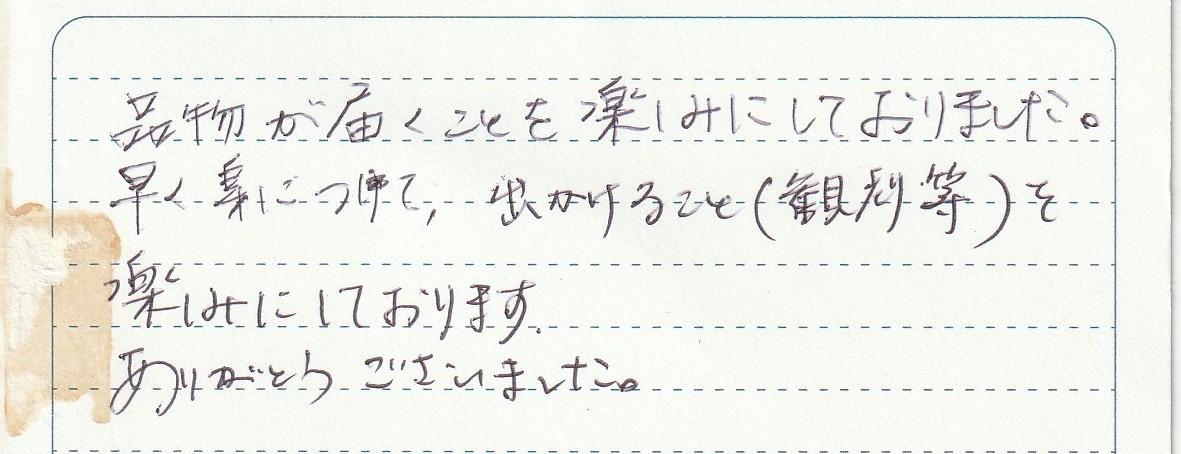 品物が届くことを楽しみにしておりました。
早く身につけて、出かけること(観劇等)を
楽しみにしております。
ありがとうございました。